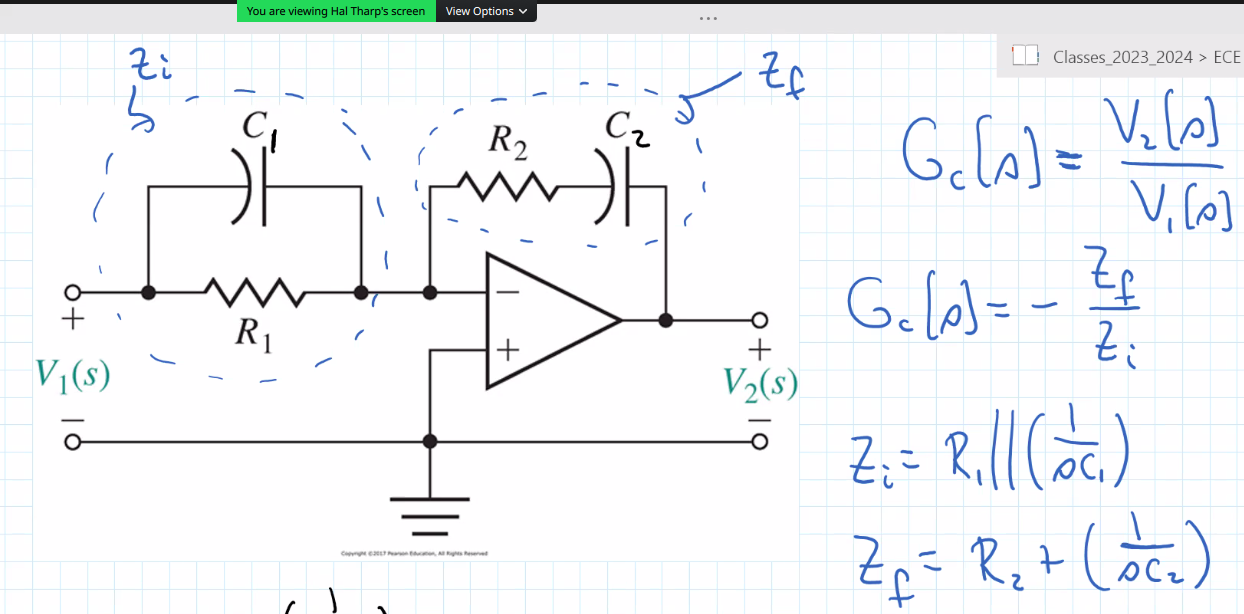 You are viewing Hal Tharp's screen View Options
Classes_2023_2024 > ECE
Zi
Zf
C1
R2
C2
R1
+
V1(s)
−
−
+
+
V2(s)
−
Copyright ©2017 Pearson Education, All Rights Reserved
Gc(s) = V2(s) / V1(s)
Gc(s) = − Zf / Zi
Zi = R1 || (1 / sC1)
Zf = R2 + (1 / sC2)